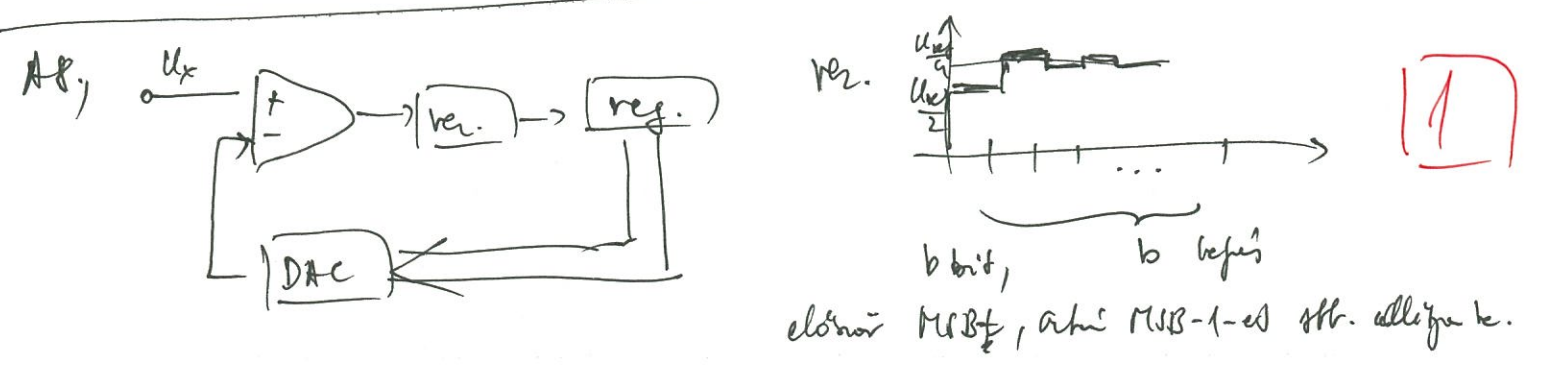 A8.,
Ux
+
-
vez.
reg.
DAC
vez.
Ux
2
1
...
b bit,
b lépés
először MSB-t, aztán MSB-1-et stb. állítja be.